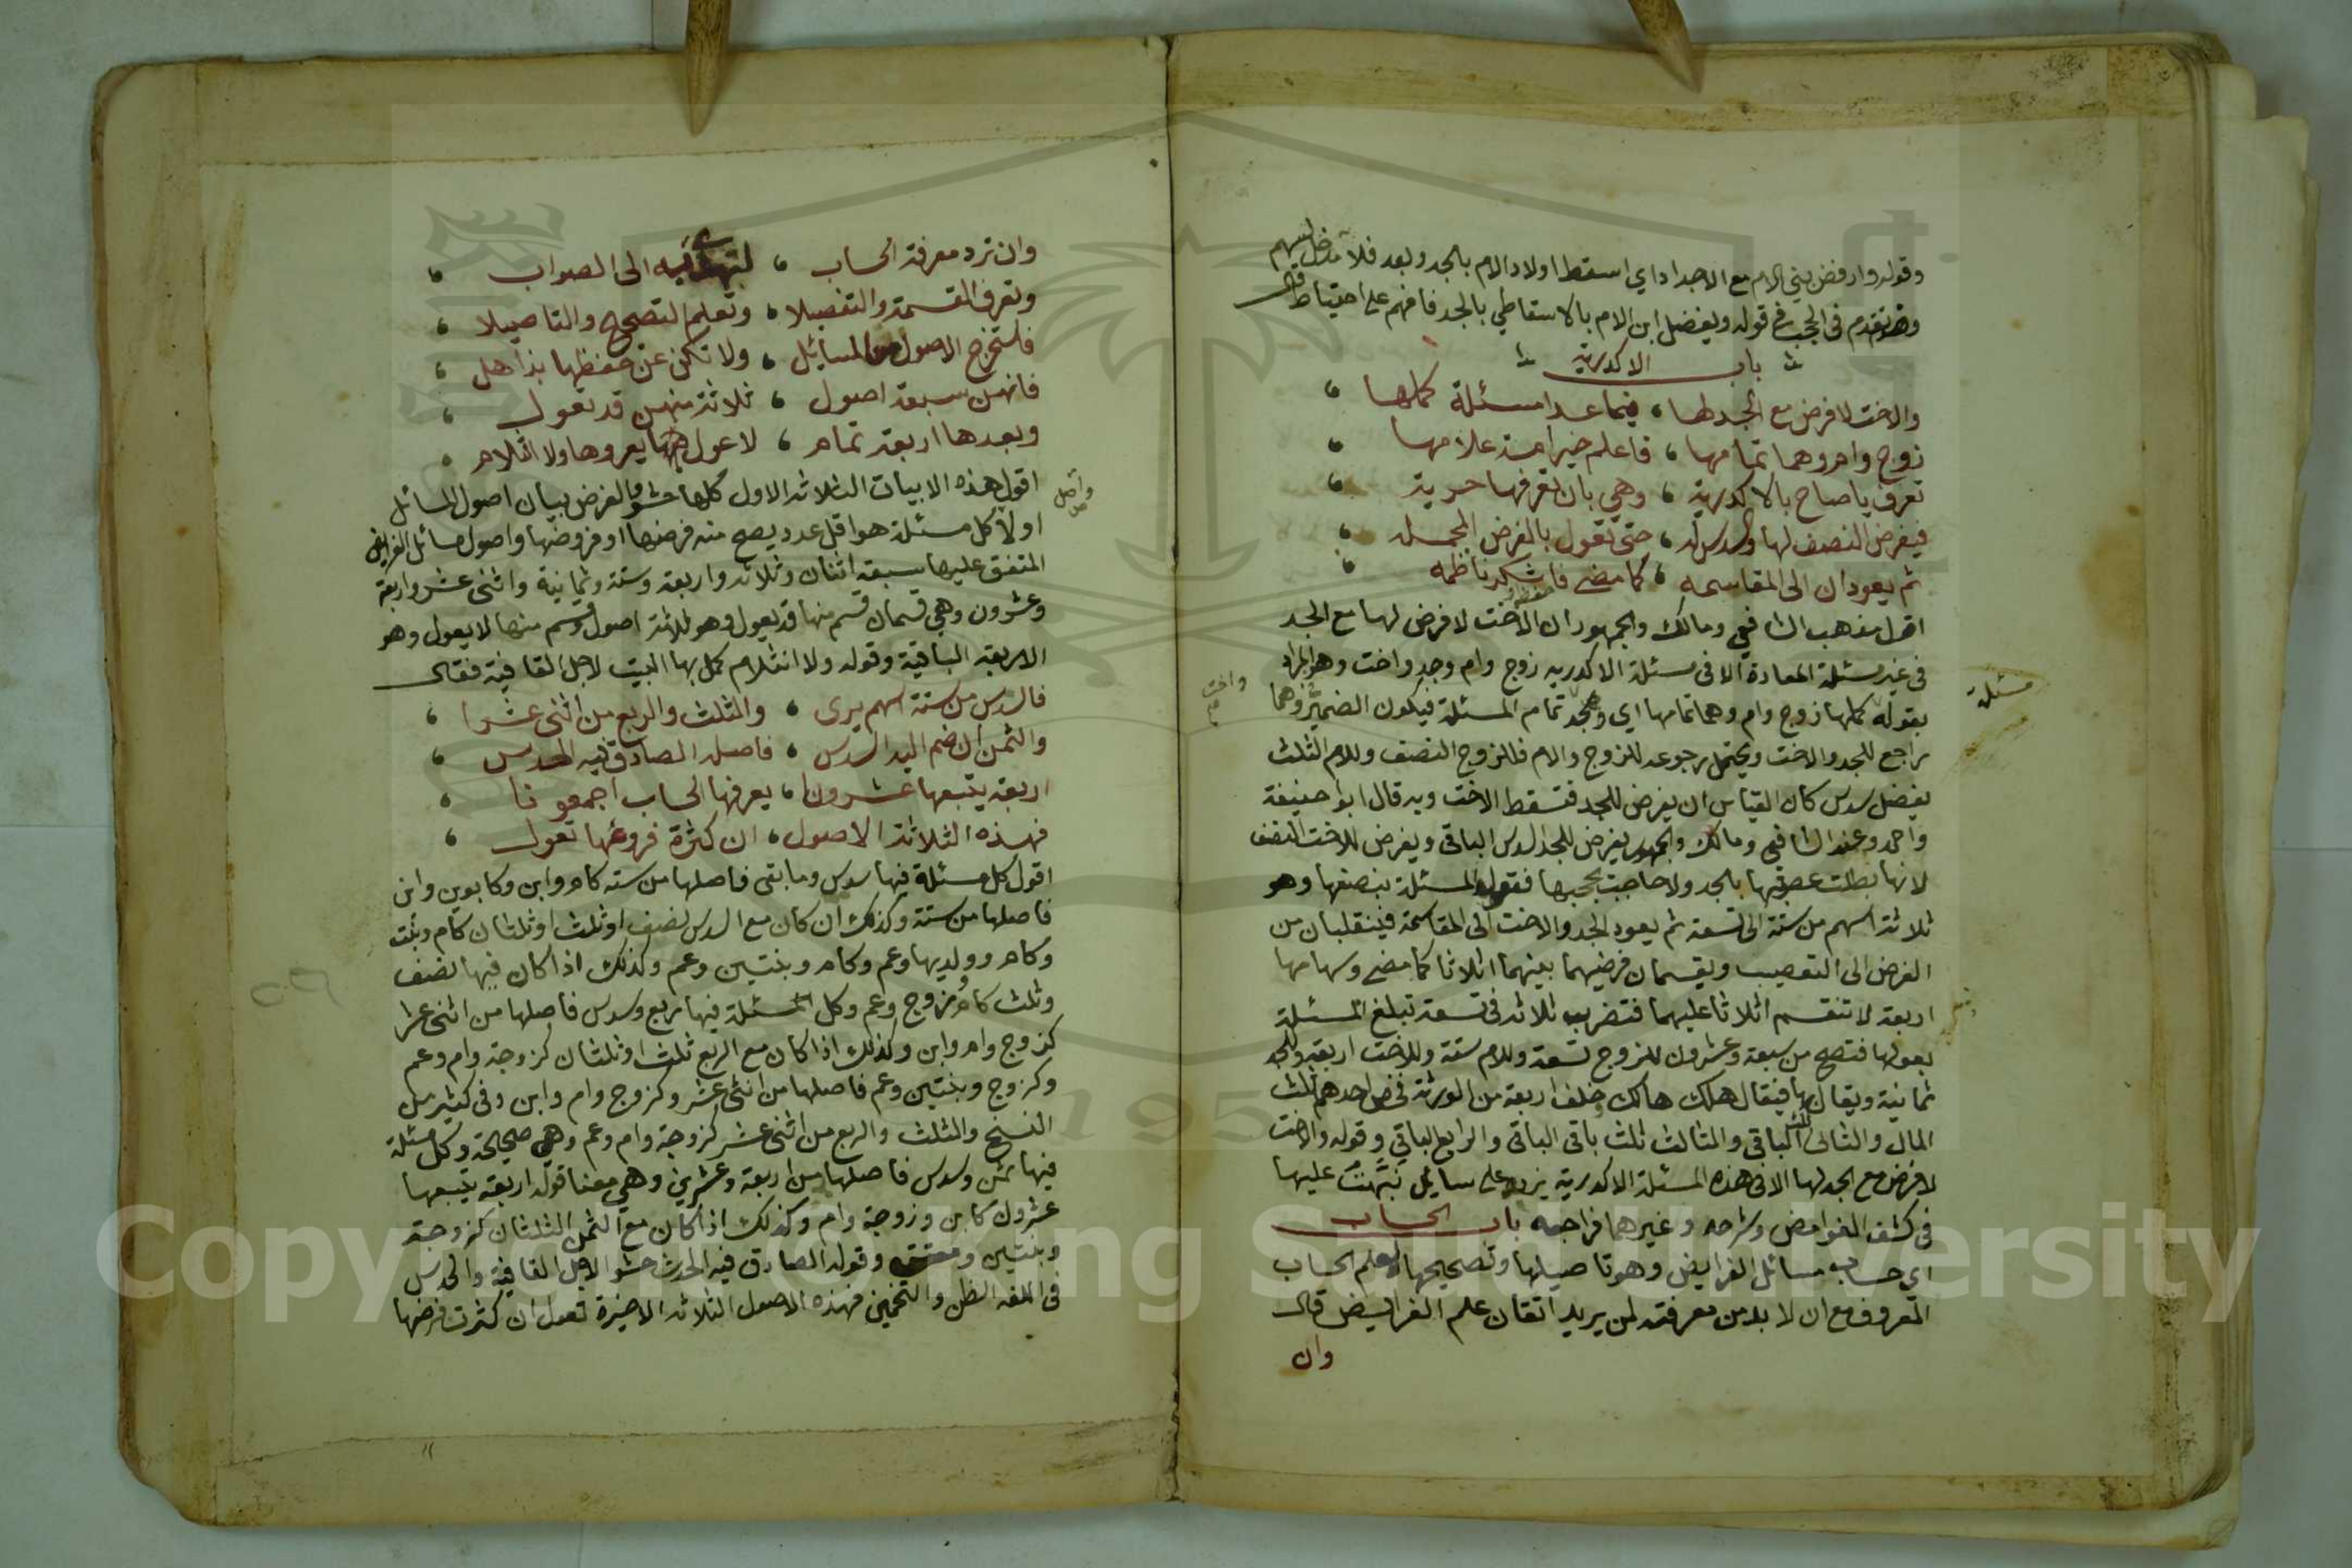 وقوله وارفض بني الام مع الاجداد اي اسقط اولاد الام بالجد وبعد فلا مدخل لهم
وقد تقدم في الحجب في قوله ويفضل ابن الام بالاسقاطي بالجد فافهم على احتياط قال
باب الاكدرية
والاخت لا فرض مع الجد لها ، فيما عدا مسئلة كملها ،
زوج وام وهما تمامها ، فاعلم خير امة علامها ،
تعرف يا صاح بالاكدرية ، وهي بان تعرفها حرية ،
فيفرض النصف لها والسدس له ، حتى تعول بالفرض المجمله ،
ثم يعودان الى المقاسمه ، كما مضى فاشكر ناظمه ،
اقول مذهب الشافعي ومالك والجمهور ان الاخت لا فرض لها مع الجد
في غير مسئلة المعادة الا في مسئلة الاكدرية زوج وام وجد واخت وهو المراد
بقوله كملها زوج وام وهما تمامها اي وهي والجد تمام المسئلة فيكون الضمير وهما
راجع للجد والاخت ويحتمل رجوعه للزوج والام فللزوج النصف وللام الثلث
يفضل سدس كان القياس ان يفرض للجد فتسقط الاخت وبه قال ابو حنيفة
واحمد وعند الشافعي ومالك والجمهور يفرض للجد السدس الباقي ويفرض للاخت النصف
لانها بطلت عصوبتها بالجد ولا حاجب يحجبها فتعول المسئلة بنصفها وهو
ثلاثة اسهم من ستة الى تسعة ثم يعود الجد والاخت الى المقاسمة فينقلبان من
الفرض الى التعصيب ويقسمان فرضيهما بينهما اثلاثا كما مضى وسهامها
اربعة لا تنقسم اثلاثا عليهما فتضرب ثلاثة في تسعة تبلغ المسئلة
بعولها فتصح من سبعة وعشرون للزوج تسعة وللام ستة وللاخت اربعة وللجد
ثمانية ويقال بها فيقال هلك هالك وخلف اربعة من الورثة فخص احدهم ثلث
المال والثاني ثلث الباقي والثالث ثلث باقي الباقي والرابع الباقي وقوله والاخت
لا فرض مع الجد لها الا في هذه المسئلة الاكدرية يزيد على سايل نبهت عليها
في كشف الغوامض وشرحه وغيرهما فراجعه باب الحساب
اي حساب مسائل الفرايض وهو تاصيلها وتصحيحها لا علم الحساب
المعروف مع ان لا بد من معرفته لمن يريد اتقان علم الفرايض قال
وان
مسئلة
واخت
وان ترد معرفة الحساب ، لتهتدي به الى الصواب ،
وتعرف القسمة والتفصيلا ، وتعلم التصحيح والتاصيلا ،
فاستخرج الاصول في المسائل ، ولا تكن عن حفظها بذاهل ،
فانهن سبعة اصول ، ثلاثة منهن قد تعول ،
وبعدها اربعة تمام ، لا عول يعروها ولا انثلام ،
اقول هذه الابيات الثلاثة الاول كلها حشو والغرض بيان اصول المسائل
اولا كل مسئلة هو اقل عدد يصح منه فرضها او فروضها واصول مسائل الفرايض
المتفق عليها سبعة اثنان وثلاثة واربعة وستة وثمانية واثنى عشر واربعة
وعشرون وهي قسمان قسم منها قد يعول وهو ثلاثة اصول وقسم منها لا يعول وهو
الاربعة الباقية وقوله ولا انثلام كمل بها البيت لاجل القافية فقال
فالسدس من ستة اسهم يرى ، والثلث والربع من اثنى عشرا ،
والثمن ان ضم اليه السدس ، فاصله الصادق فيه الحدس ،
اربعة يتبعها عشرونا ، يعرفها الحساب اجمعونا ،
فهذه الثلاثة الاصول ، ان كثرة فروعها تعول ،
اقول كل مسئلة فيها سدس وما بقى فاصلها من سته كام وابن وكابوين وابن
فاصلها من ستة وكذلك ان كان مع السدس نصف او ثلث او ثلثان كام وبنت
وكام وولديها وعم وكام وبنتين وعم وكذلك اذا كان فيها نصف
وثلث كام وزوج وعم وكل مسئلة فيها ربع وسدس فاصلها من اثنى عشرا
كزوج وام وابن وكذلك اذا كان مع الربع ثلث او ثلثان كزوجة وام وعم
وكزوج وبنتين وعم فاصلها من اثنى عشر وكزوج وام وابن وفي كثير من
النسخ والثلث والربع من اثنى عشر كزوجة وام وعم وهي صحيحة وكل مسئلة
فيها ثمن وسدس فاصلها من اربعة وعشرين وهي معنا قوله اربعة يتبعها
عشرون كابن وزوجة وام وكذلك اذا كان مع الثمن الثلثان كزوجة
وبنتين ومعتق وقوله الصادق فيه الحدس حشو لاجل القافية والحدس
في اللغة الظن والتخمين فهذه الاصول الثلاثة الاخيرة تعول ان كثرت فروضها
واصل
Copyright © King Saud University
195